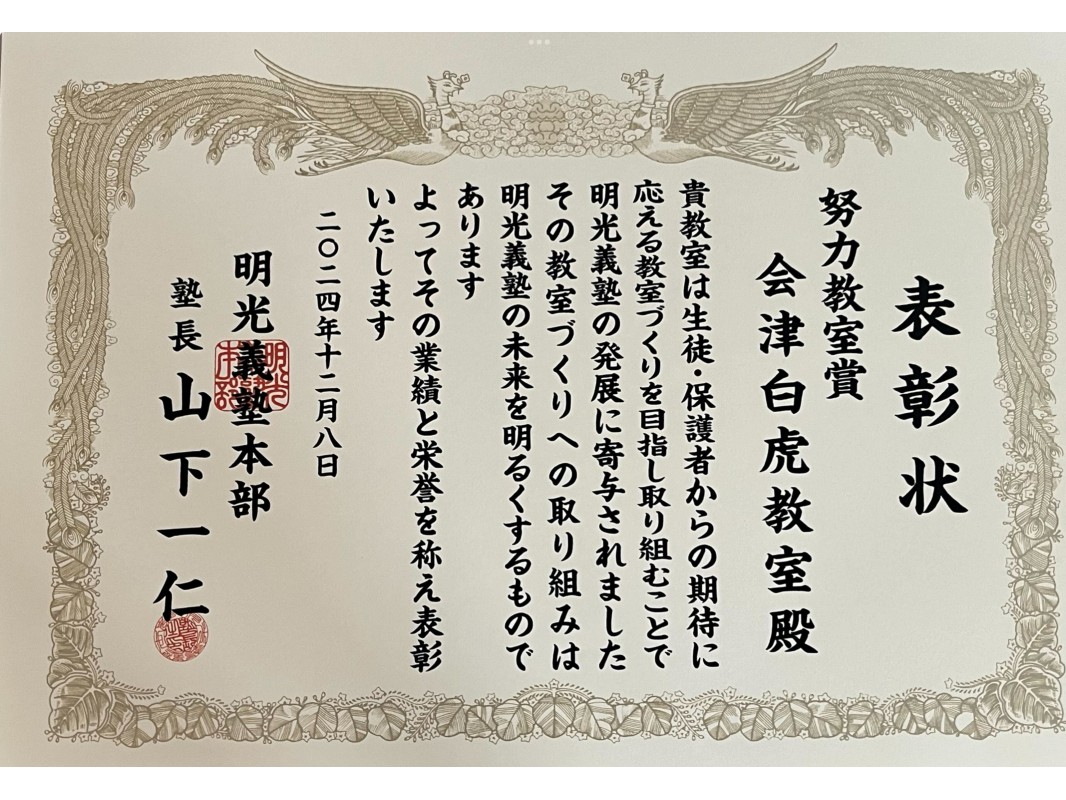 表彰状
努力教室賞
会津白虎教室殿
貴教室は生徒・保護者からの期待に
応える教室づくりを目指し取り組むことで
明光義塾の発展に寄与されました
その教室づくりへの取り組みは
明光義塾の未来を明るくするもので
あります
よってその業績と栄誉を称え表彰
いたします
二〇二四年十二月八日
明光義塾本部
塾長 山下一仁